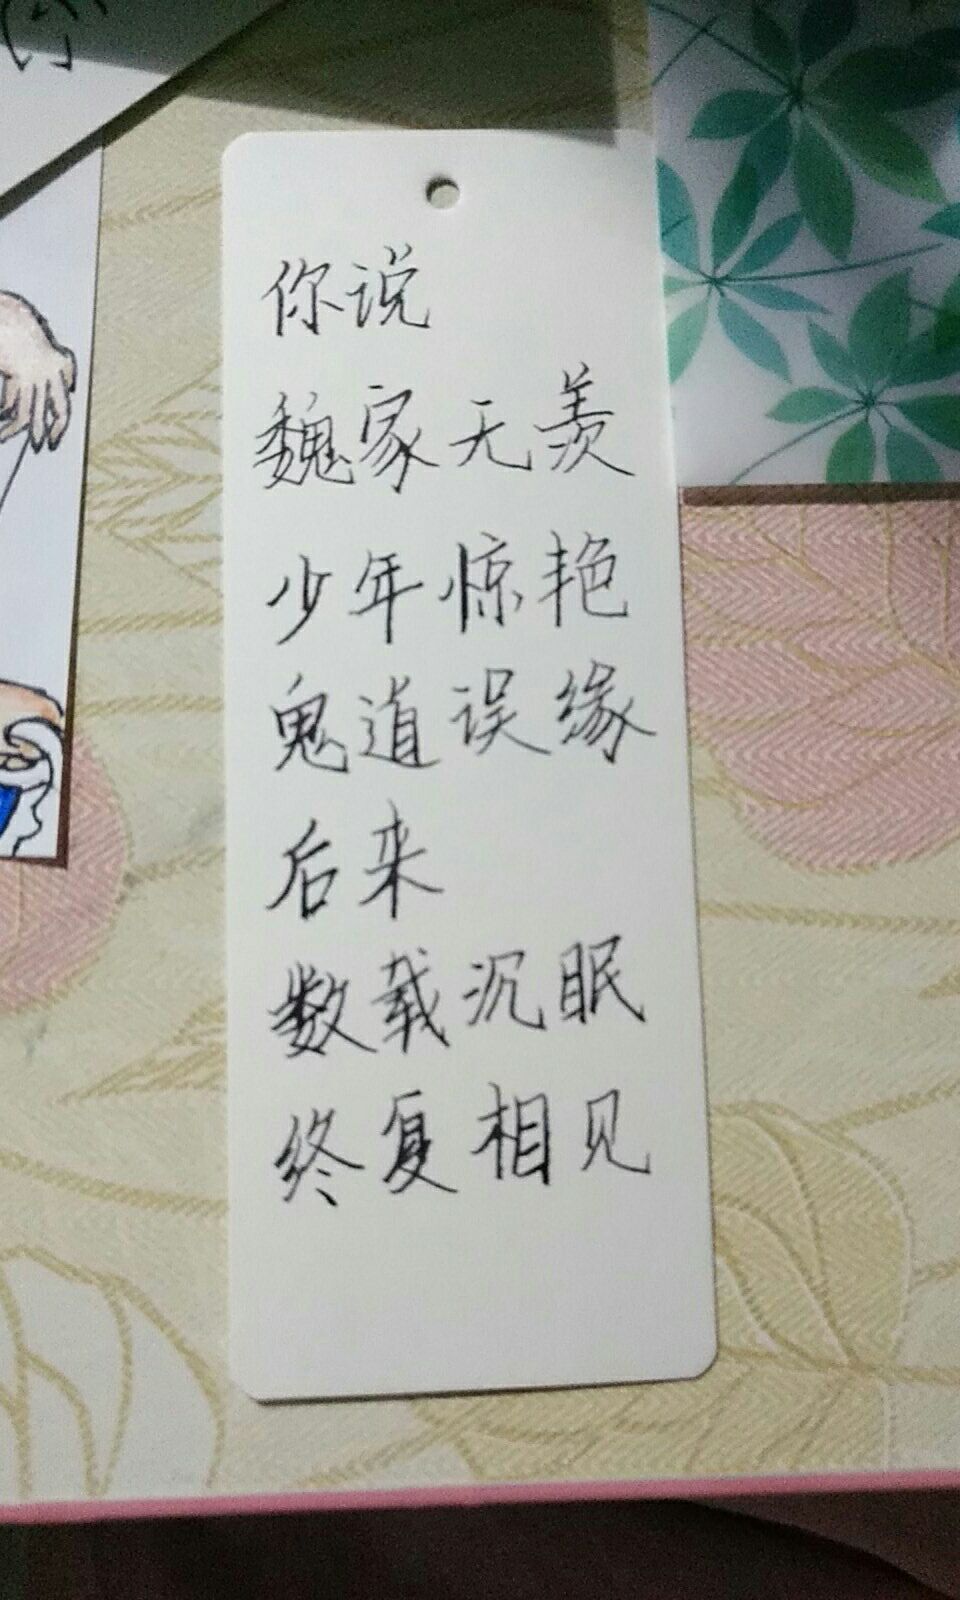 你说
魏家无羡
少年惊艳
鬼道误缘
后来
数载沉眠
终复相见